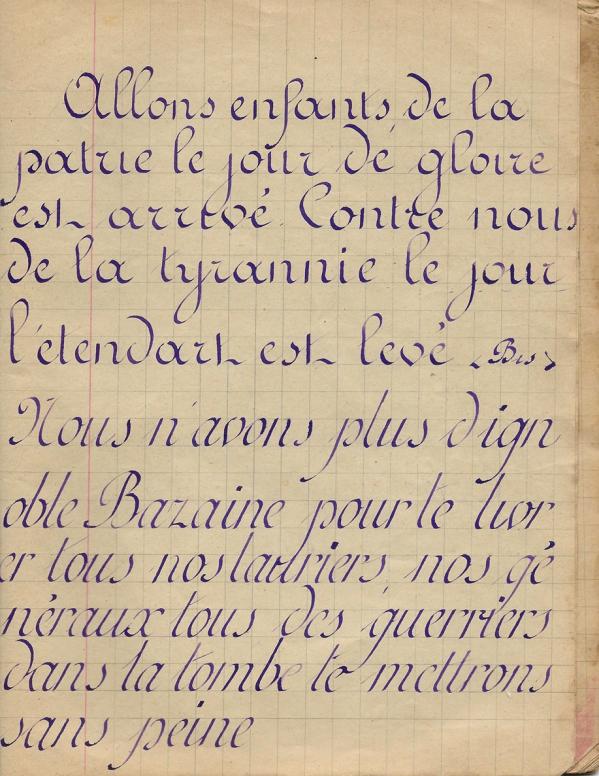 Allons enfants de la
patrie le jour de gloire
est arrivé Contre nous
de la tyrannie le jour
l'étendart est levé (Bis)
Nous n'avons plus d'ign
oble Bazaine pour te livr
er tous nos lauriers, nos gé
néraux tous des guerriers
dans la tombe te mettrons
sans peine